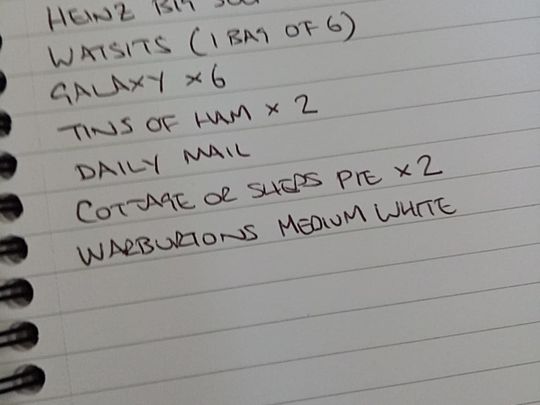 HEINZ BIG SOUP
WATSITS (1 BAG OF 6)
GALAXY x6
TINS OF HAM x 2
DAILY MAIL
COTTAGE OR SHEPS PIE x2
WARBURTONS MEDIUM WHITE